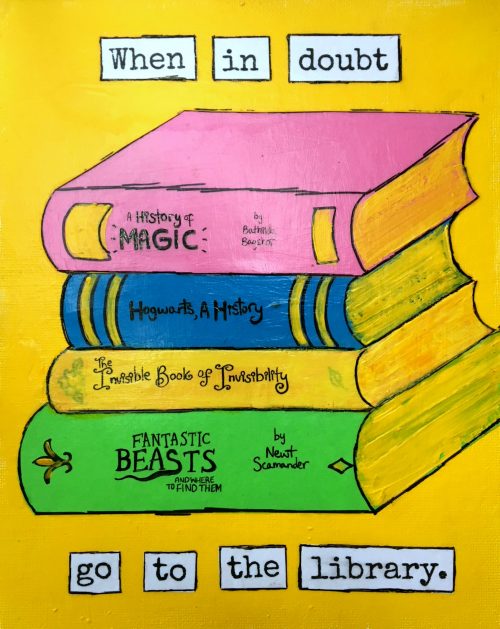 When in doubt
A History of
MAGIC
by
Bathilda
Bagshot
Hogwarts, A History
The
Invisible Book of Invisibility
FANTASTIC
BEASTS
AND WHERE
TO FIND THEM
by
Newt
Scamander
go to the library.